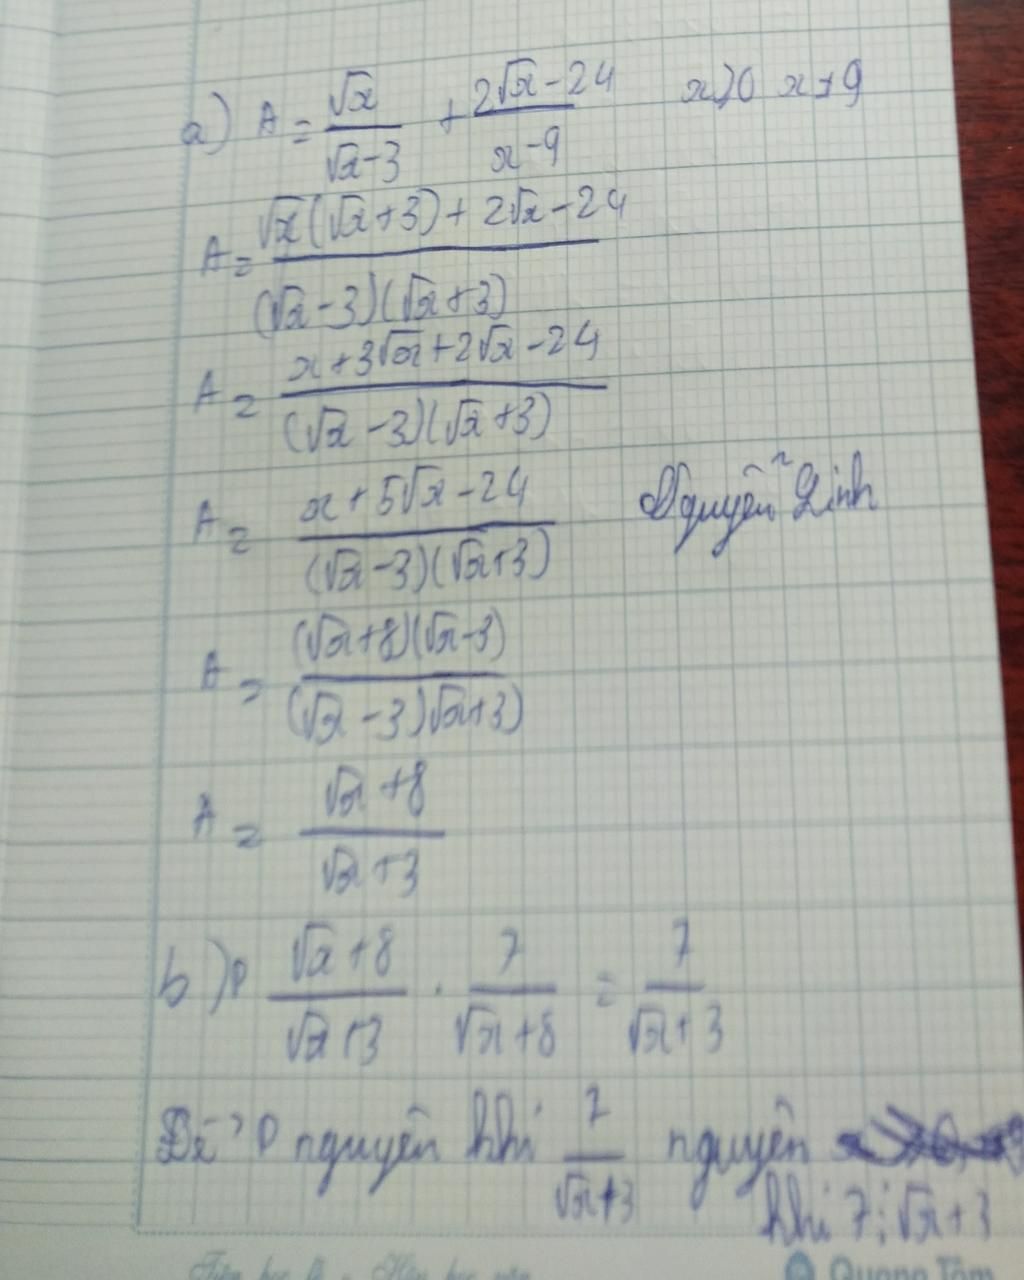 a) A = √x / (√x-3) + (2√x-24) / (x-9) x>0 x≠9
A = (√x(√x+3) + 2√x-24) / ((√x-3)(√x+3))
A = (x+3√x+2√x-24) / ((√x-3)(√x+3))
A = (x+5√x-24) / ((√x-3)(√x+3))
Nguyễn Linh
A = ((√x+8)(√x-3)) / ((√x-3)√x+3)
A = (√x+8) / (√x+3)
b) P (√x+8) / (√x+3) . 7 / (√x+8) = 7 / (√x+3)
Để P nguyên khi 7 / (√x+3) nguyên
khi 7 ⋮ √x+3
Quang Tâm